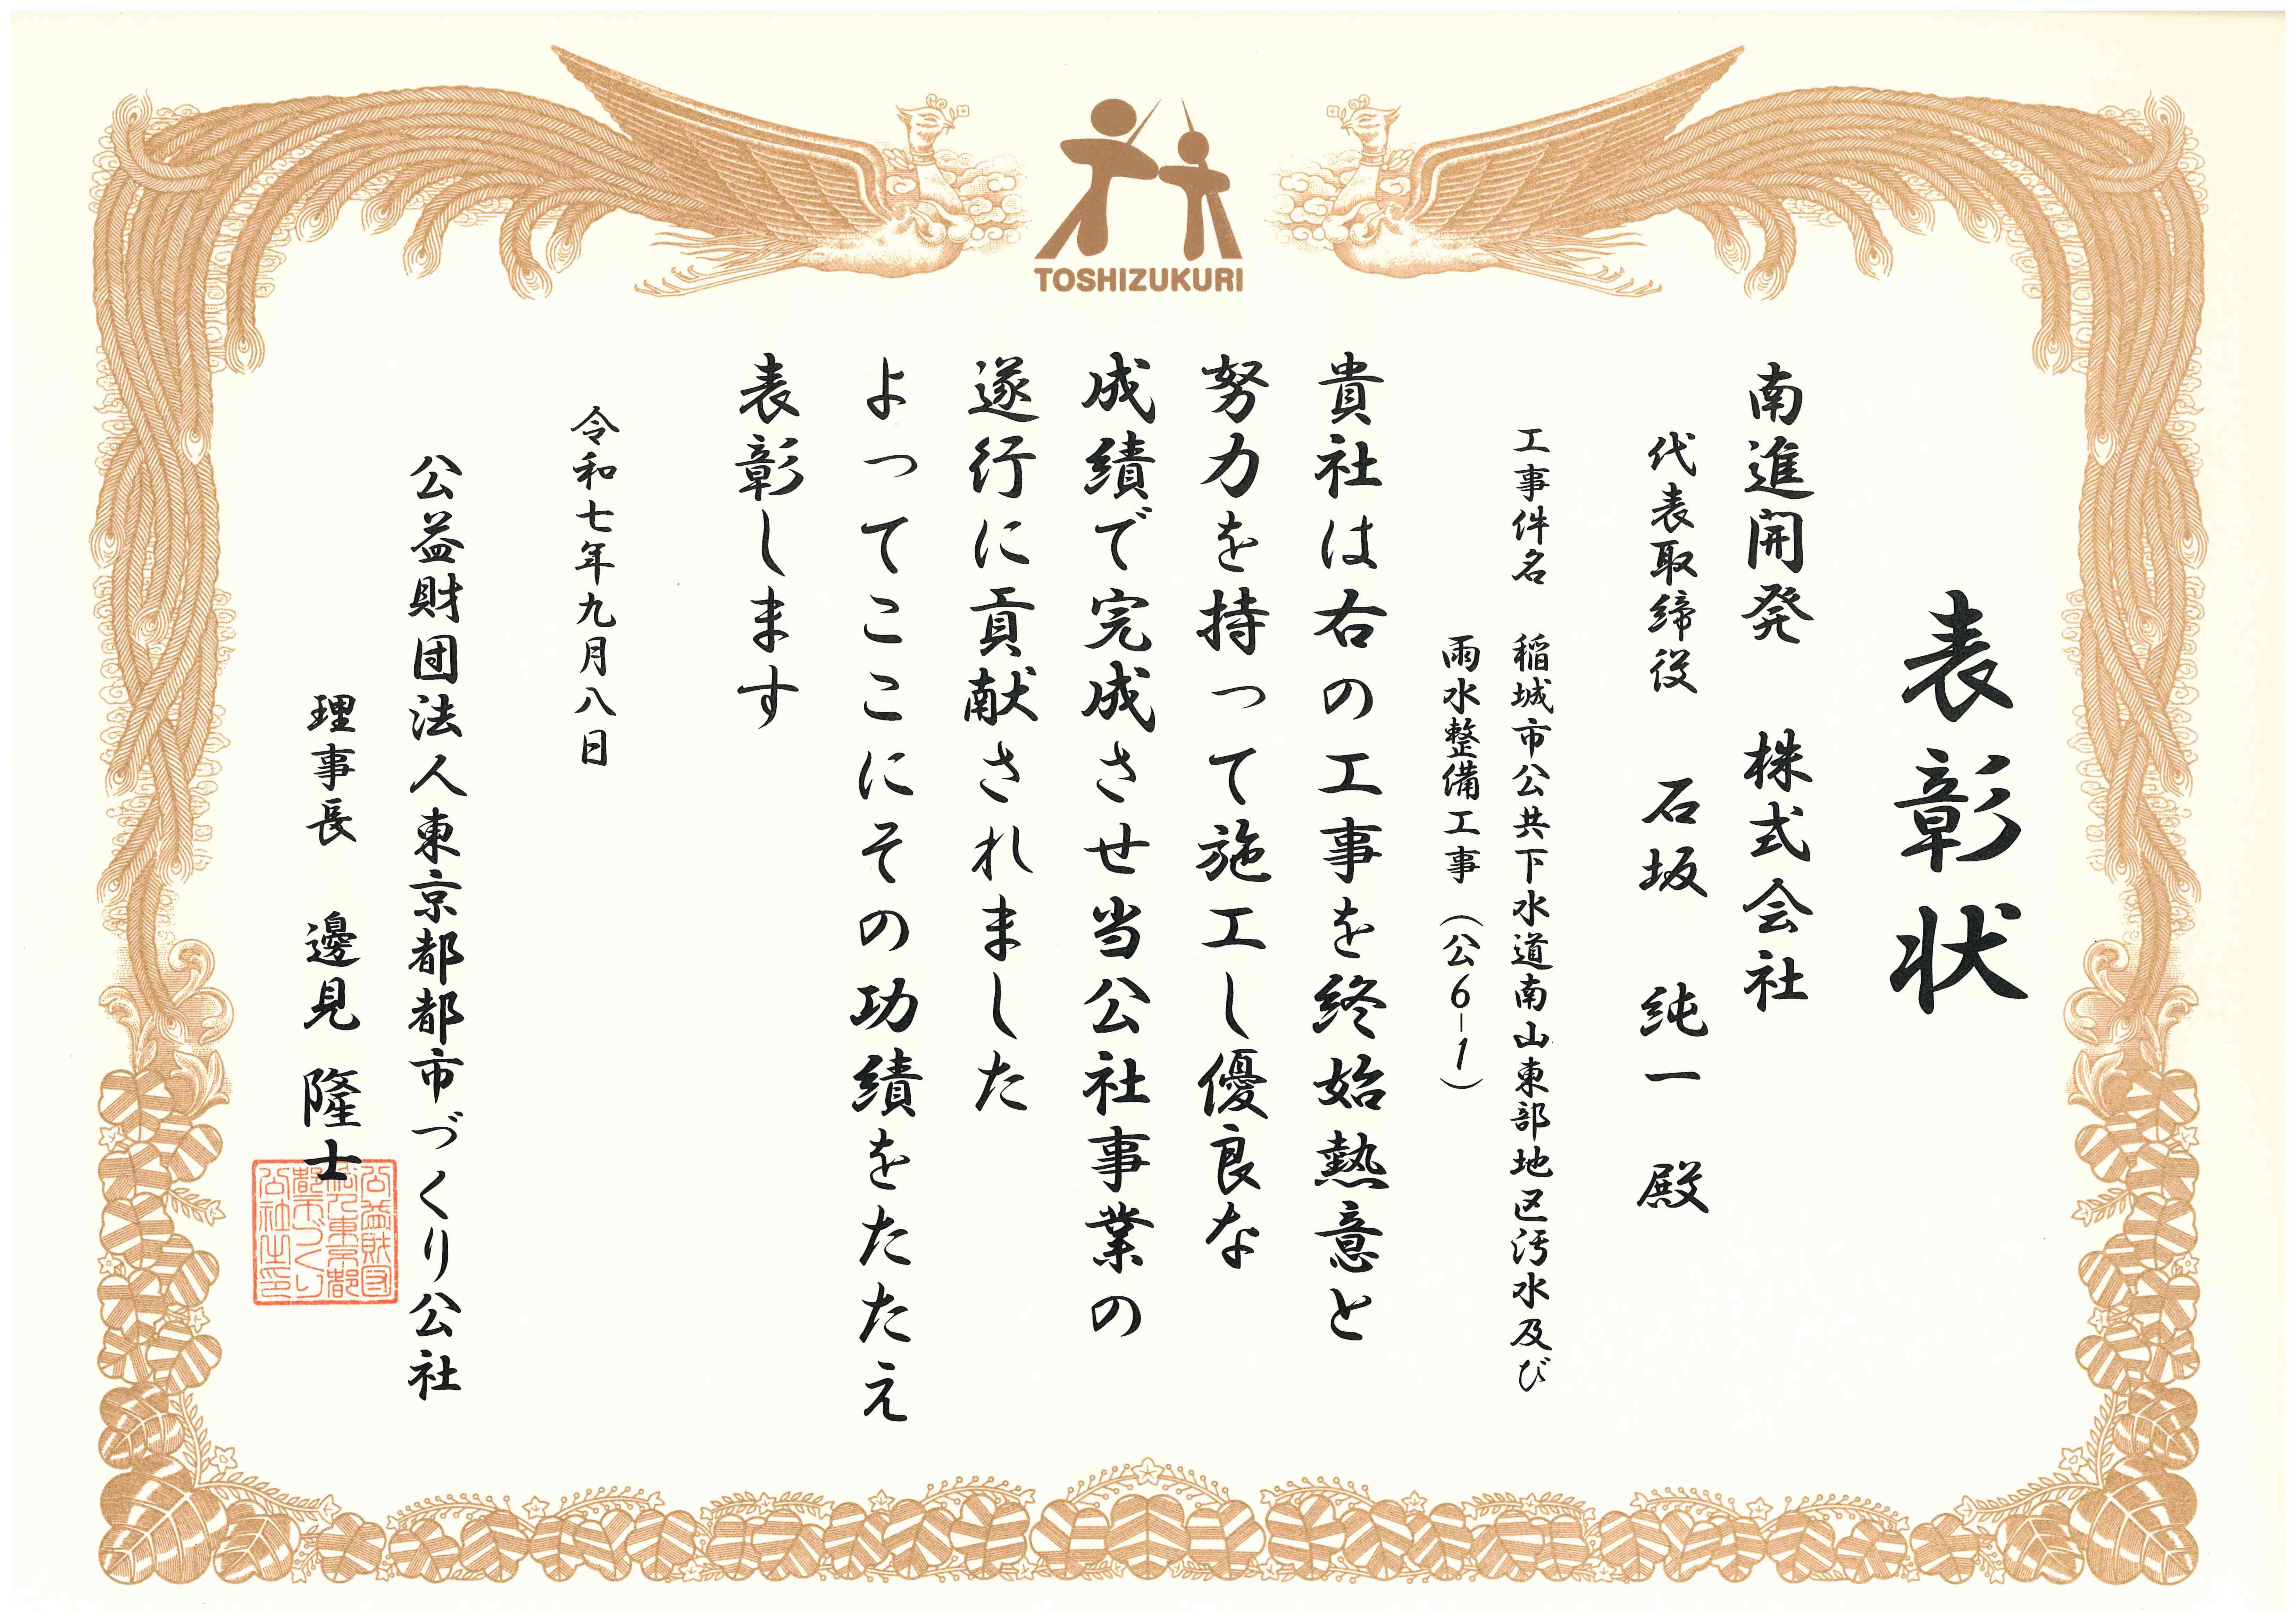 TOSHIZUKURI
表彰状
南進開発 株式会社
代表取締役 石坂 純一 殿
工事件名 稲城市公共下水道南山東部地区汚水及び
雨水整備工事(公6-1)
貴社は右の工事を終始熱意と
努力を持って施工し優良な
成績で完成させ当公社事業の
遂行に貢献されました
よってここにその功績をたたえ
表彰します
令和七年九月八日
公益財団法人東京都都市づくり公社
理事長 邊見 隆士
公益財団
法人東京都
都市づくり
公社之印